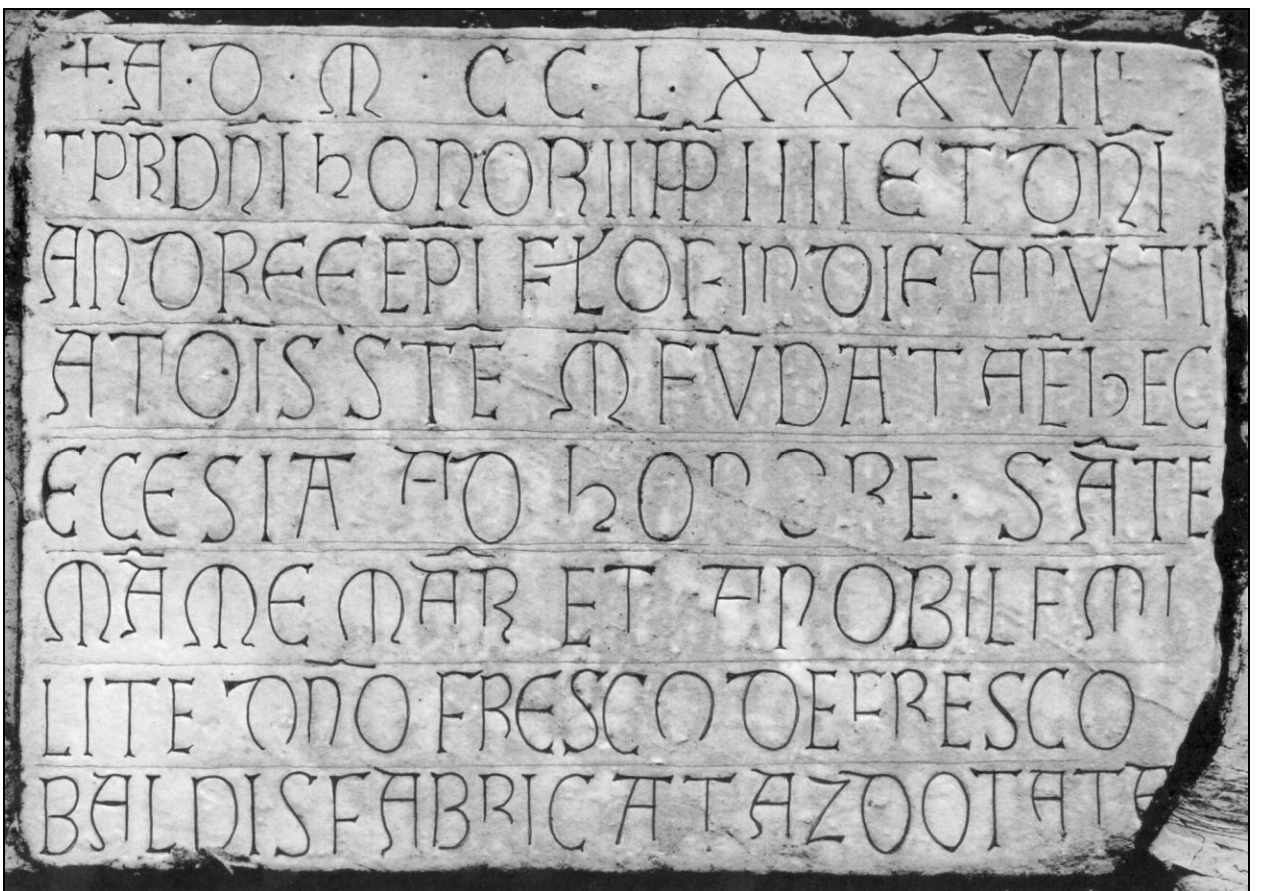 + A · D · M · C C · L · X X X VII
TPR DNI hONORII PP IIII ET DNI
ANDREE EPI FLOE IN DIE ANVTI
ATOIS STE M FVDATA E hEC
ECESIA AD hONORE · SATE
MAME MAR ET A NOBILE MI
LITE DNO FRESCO DE FRESCO
BALDIS FABRICATA Z DOTATA